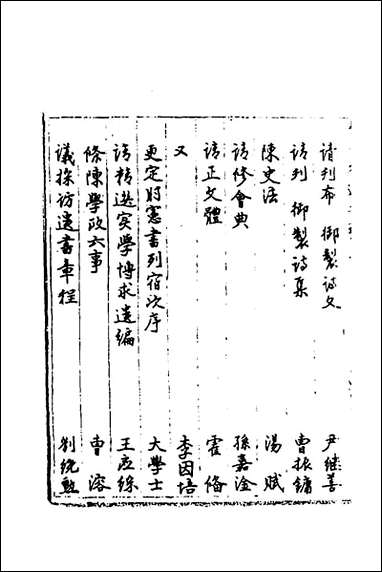 請刊布 御製詩文 尹继善
請刊 御製詩集 曹振鏞
陳史法 湯斌
請修會典 孫嘉淦
請正文體 霍备
又 李因培
更定时憲書列宿次序 大學士
請精選实学博求遺編 王应綵
條陳學政六事 曹溶
議採访遺書章程 劉统勳